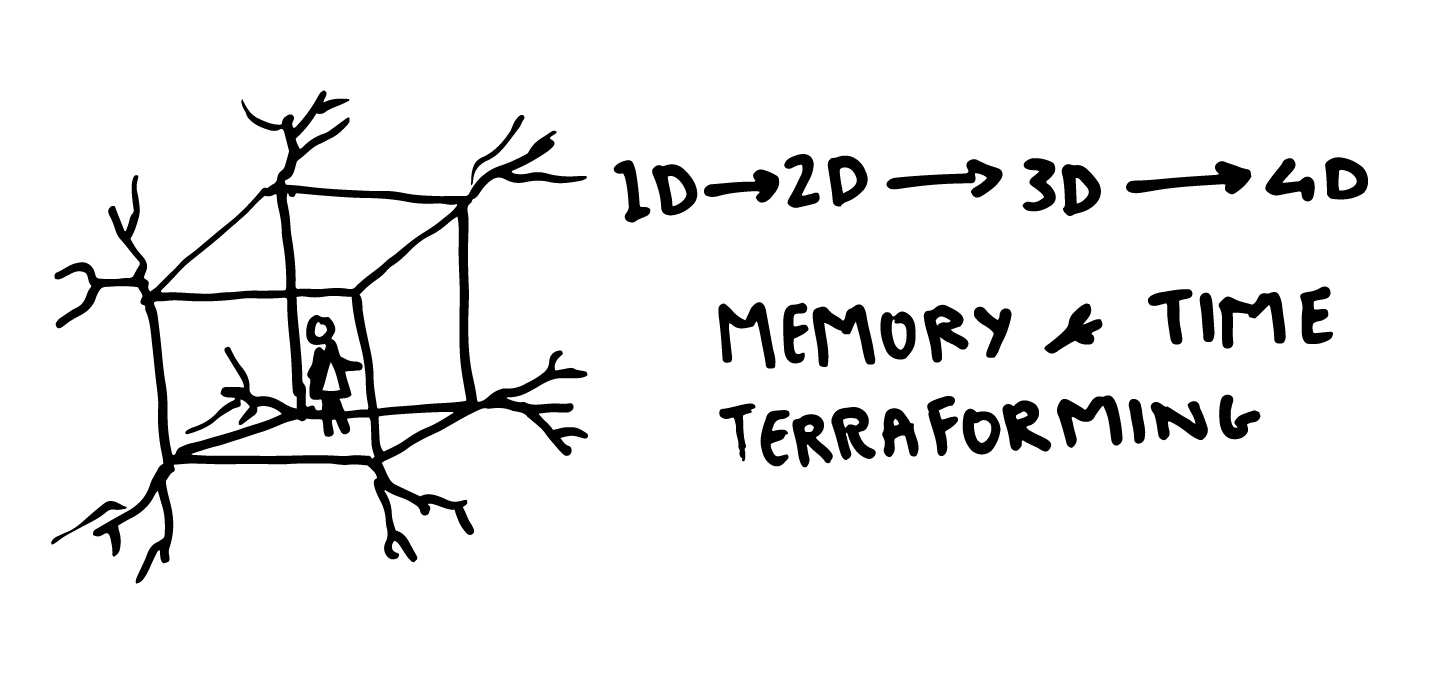 1D → 2D → 3D → 4D
MEMORY & TIME
TERRAFORMING